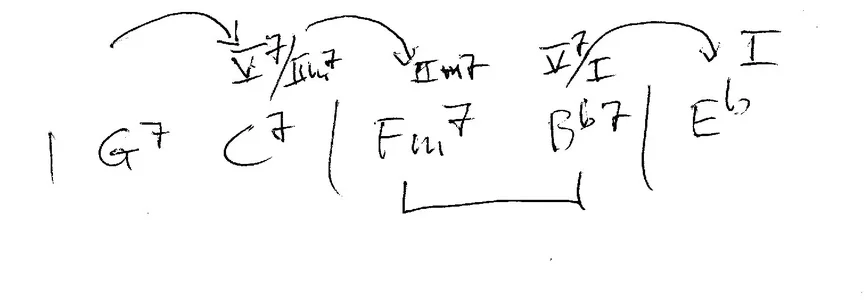 V7/IIm7 IIm7 V7/I I
| G7 C7 | Fm7 Bb7 | Eb